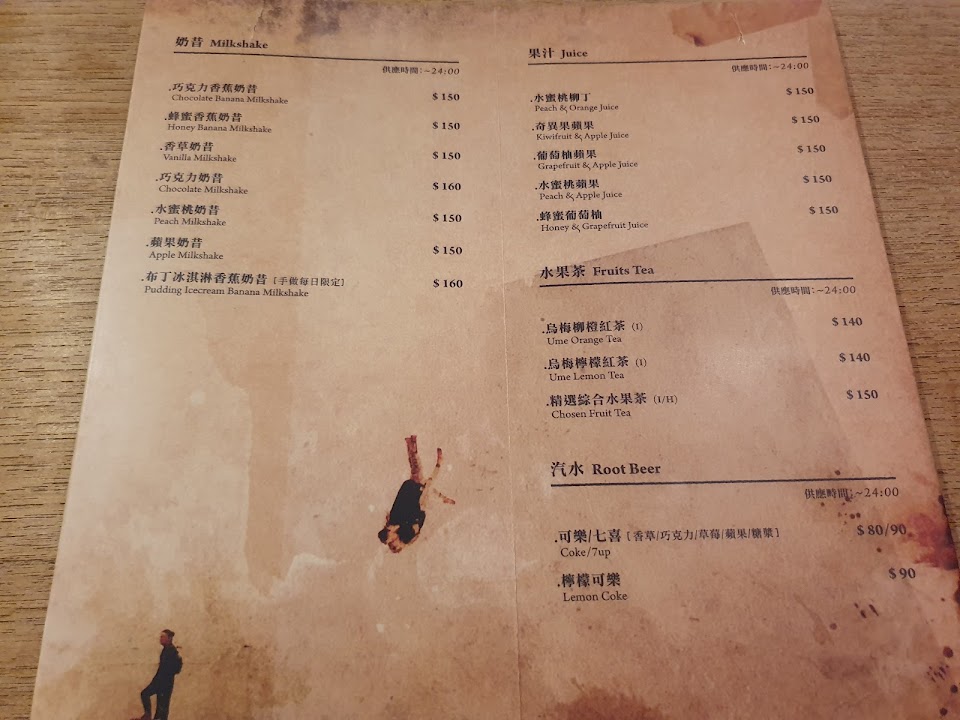 奶昔 Milkshake
供應時間：~24:00
.巧克力香蕉奶昔 $ 150
Chocolate Banana Milkshake
.蜂蜜香蕉奶昔 $ 150
Honey Banana Milkshake
.香草奶昔 $ 150
Vanilla Milkshake
.巧克力奶昔 $ 160
Chocolate Milkshake
.水蜜桃奶昔 $ 150
Peach Milkshake
.蘋果奶昔 $ 150
Apple Milkshake
.布丁冰淇淋香蕉奶昔 [手做每日限定] $ 160
Pudding Icecream Banana Milkshake
果汁 Juice
供應時間：~24:00
.水蜜桃柳丁 $ 150
Peach & Orange Juice
.奇異果蘋果 $ 150
Kiwifruit & Apple Juice
.葡萄柚蘋果 $ 150
Grapefruit & Apple Juice
.水蜜桃蘋果 $ 150
Peach & Apple Juice
.蜂蜜葡萄柚 $ 150
Honey & Grapefruit Juice
水果茶 Fruits Tea
供應時間：~24:00
.烏梅柳橙紅茶 (I) $ 140
Ume Orange Tea
.烏梅檸檬紅茶 (I) $ 140
Ume Lemon Tea
.精選綜合水果茶 (I/H) $ 150
Chosen Fruit Tea
汽水 Root Beer
供應時間：~24:00
.可樂/七喜 [香草/巧克力/草莓/蘋果/糖漿] $ 80/90
Coke/7up
.檸檬可樂 $ 90
Lemon Coke